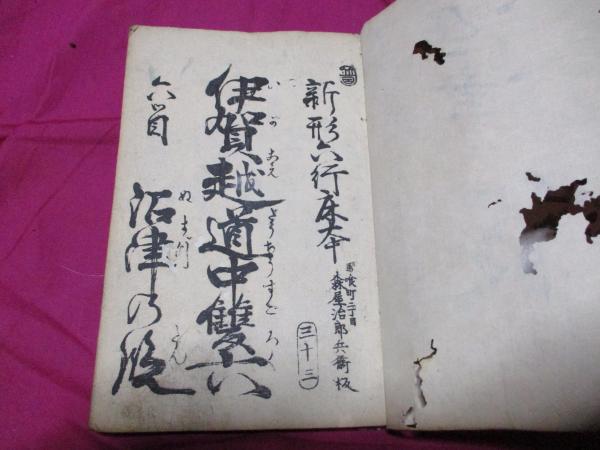 新形六行床本
馬喰町二丁目
森屋治郎兵衛板
三十三
伊賀越道中雙六
いがごえどうちうすごろく
六冊目
沼津の段
ぬまづ
だん